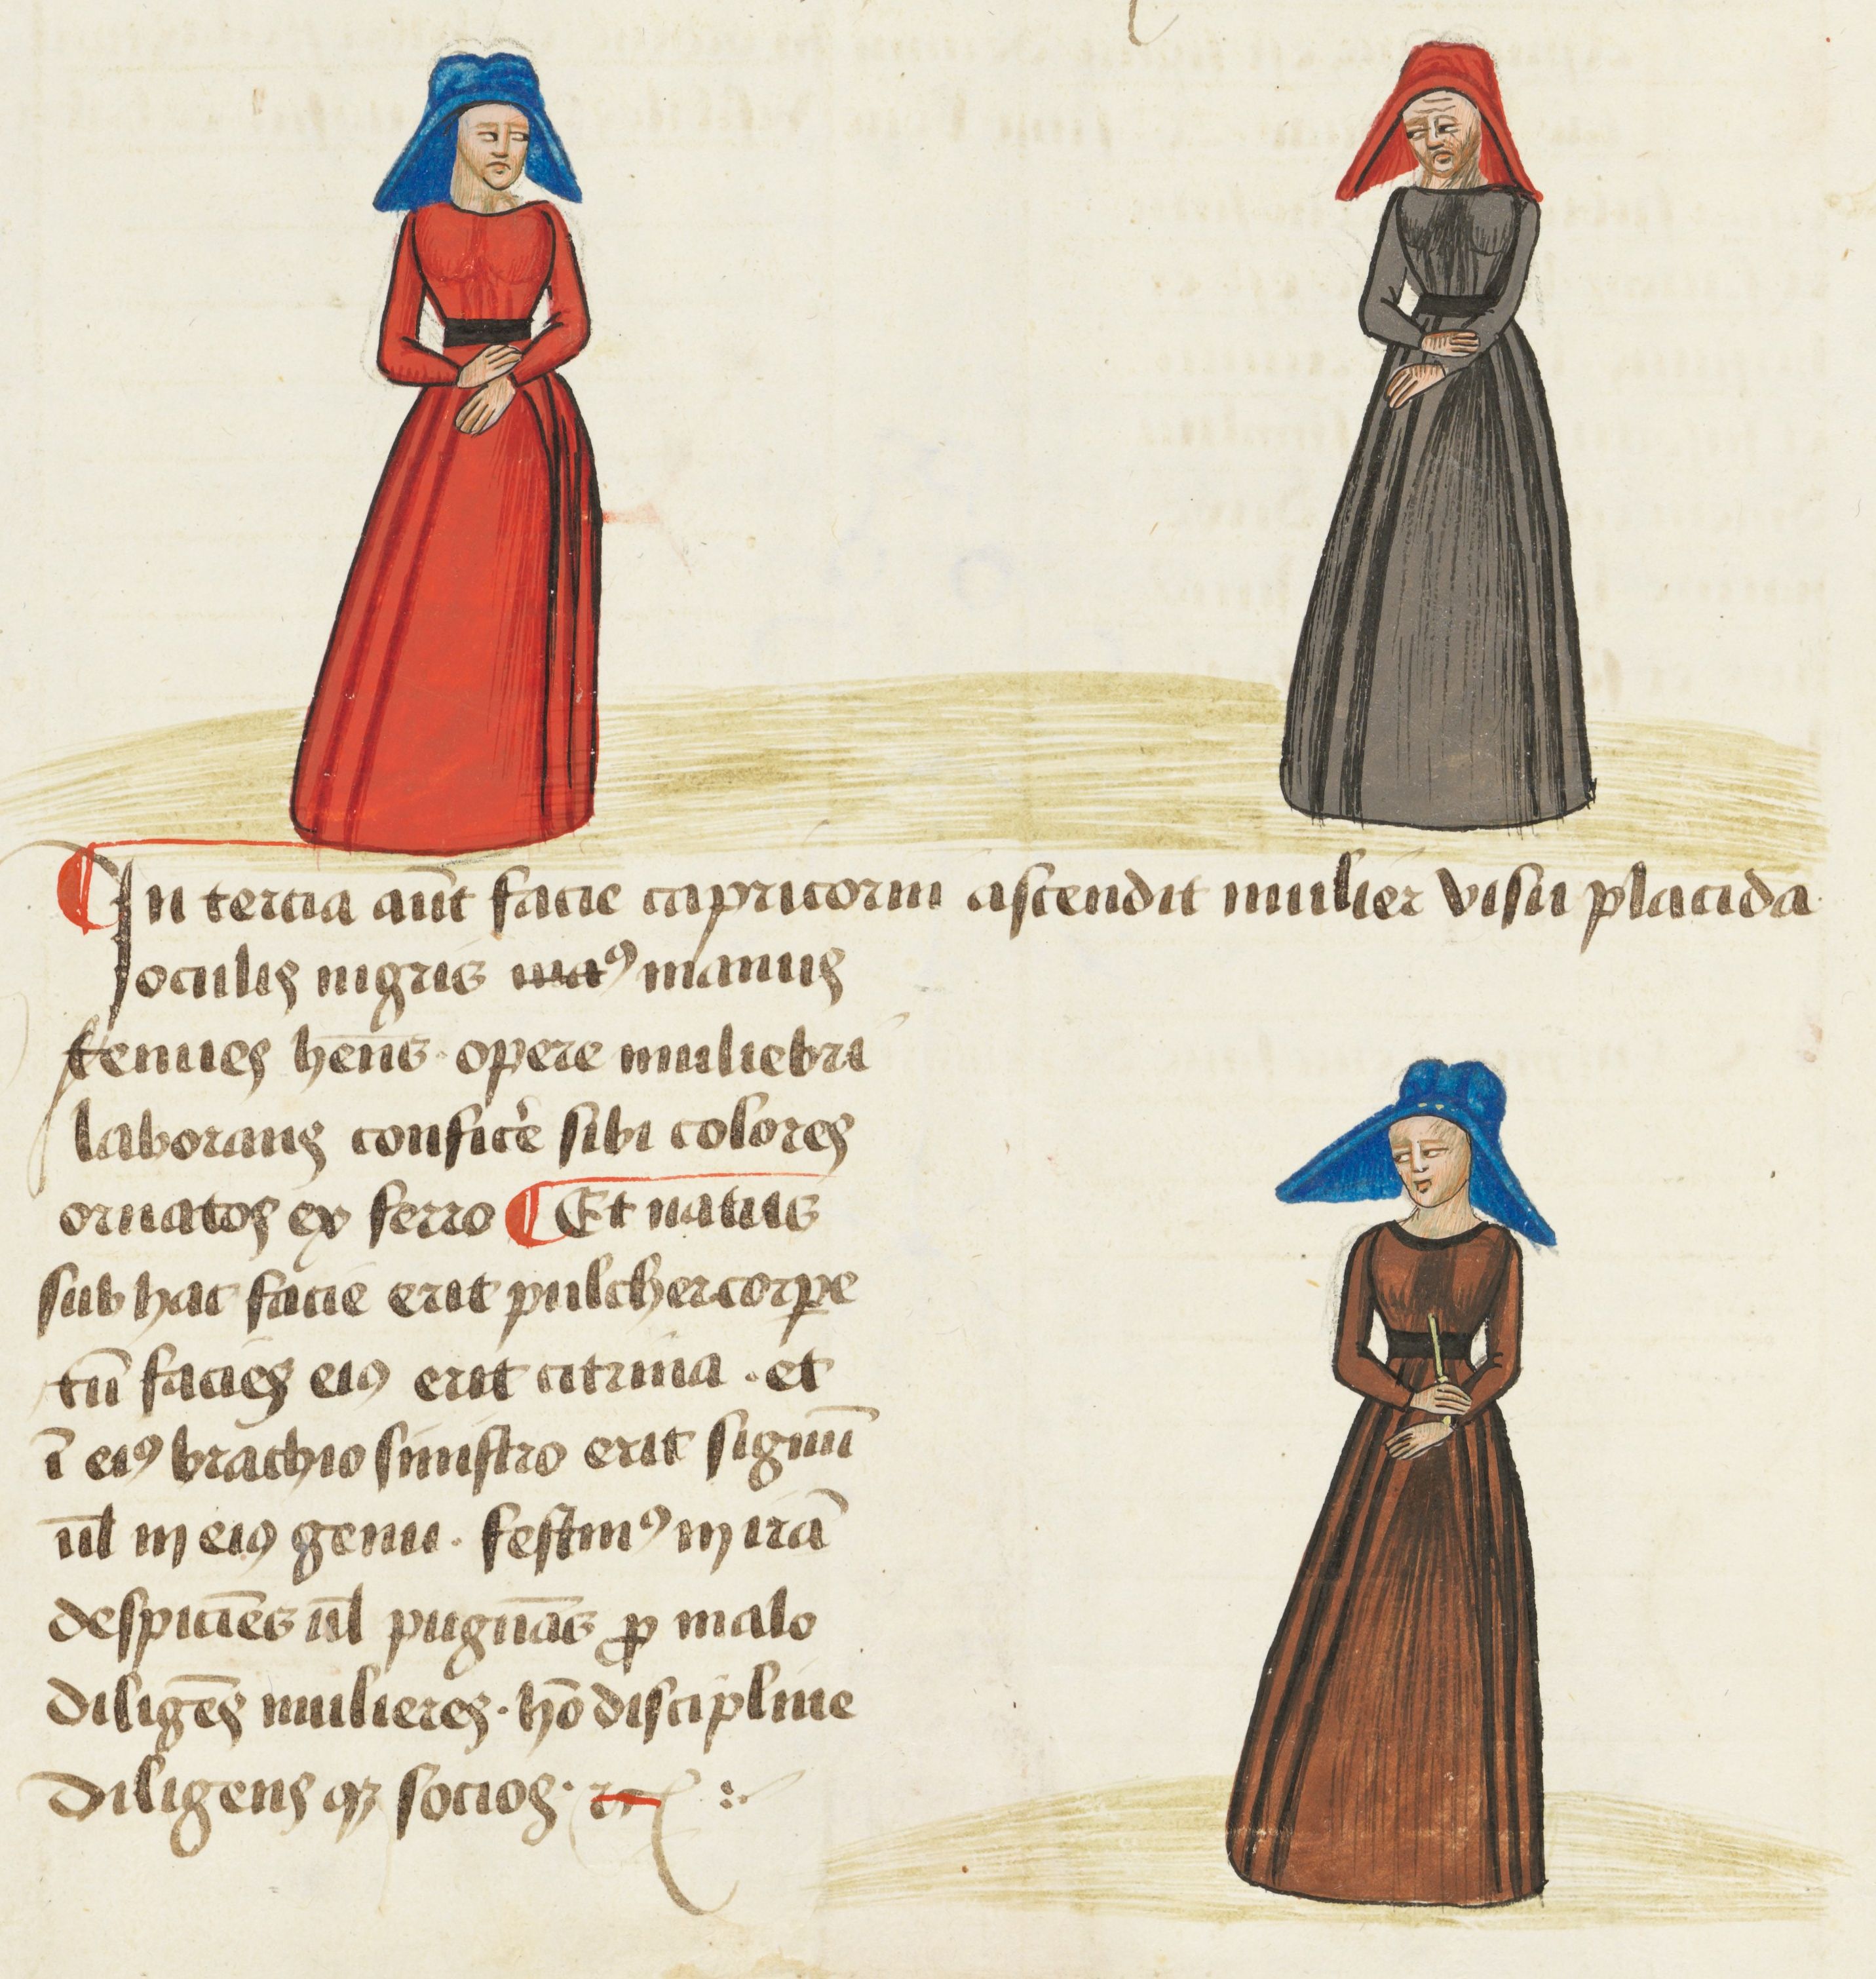 ¶ In tercia aūt facie capricorni ascendit mulier visu placida
oculis nigris manus
tenues hēns · opere muliebri
laborans conficẻ sibi colores
ornatos ex ferro ¶ Et natus
sub hac facie erit pulcher corꝑe
tn̄ facies eiꝰ erit citrina · et
ī eiꝰ brachio sinistro erit signū
ul̄ in eiꝰ genu · festinꝰ in irā
despiciēs ul̄ pugnās ꝓ malo
diligēs mulieres · hō discipline
diligens qꝫ socios ·